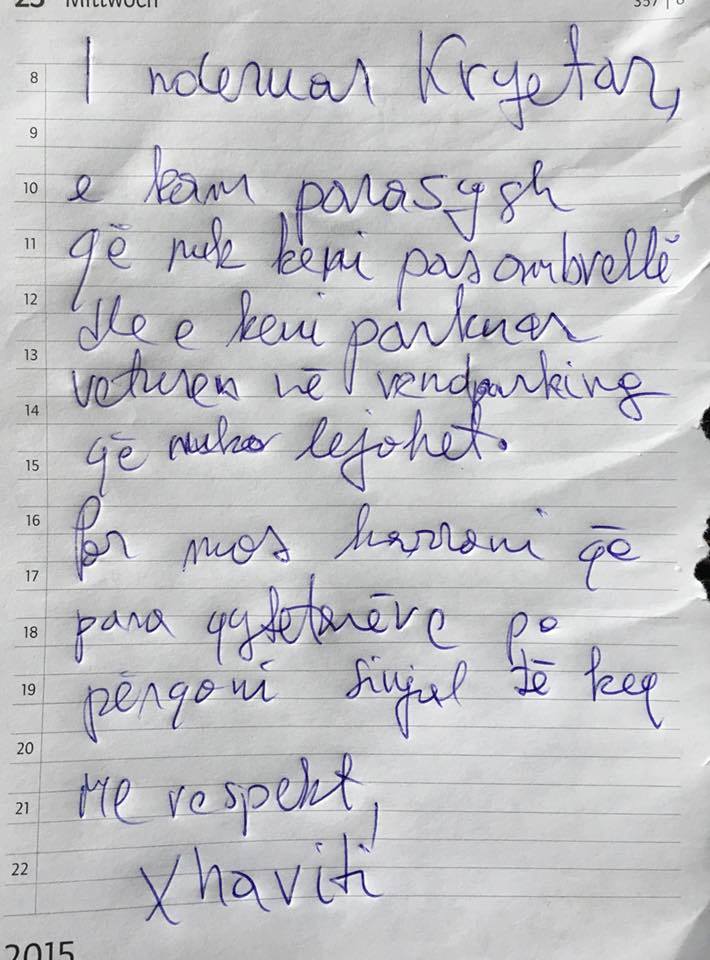 Mittwoch
I nderuar Kryetar,
8
9
e kam parasysh
10
që nuk keni pas ombrellë
11
dhe e keni parkuar
12
13
veturen në vendparking
14
që nuk lejohet.
15
Por mos harroni që
16
17
para qytetarëve po
18
përçoni sinjal të keq
19
20
Me respekt,
21
Xhaviti
22
2015